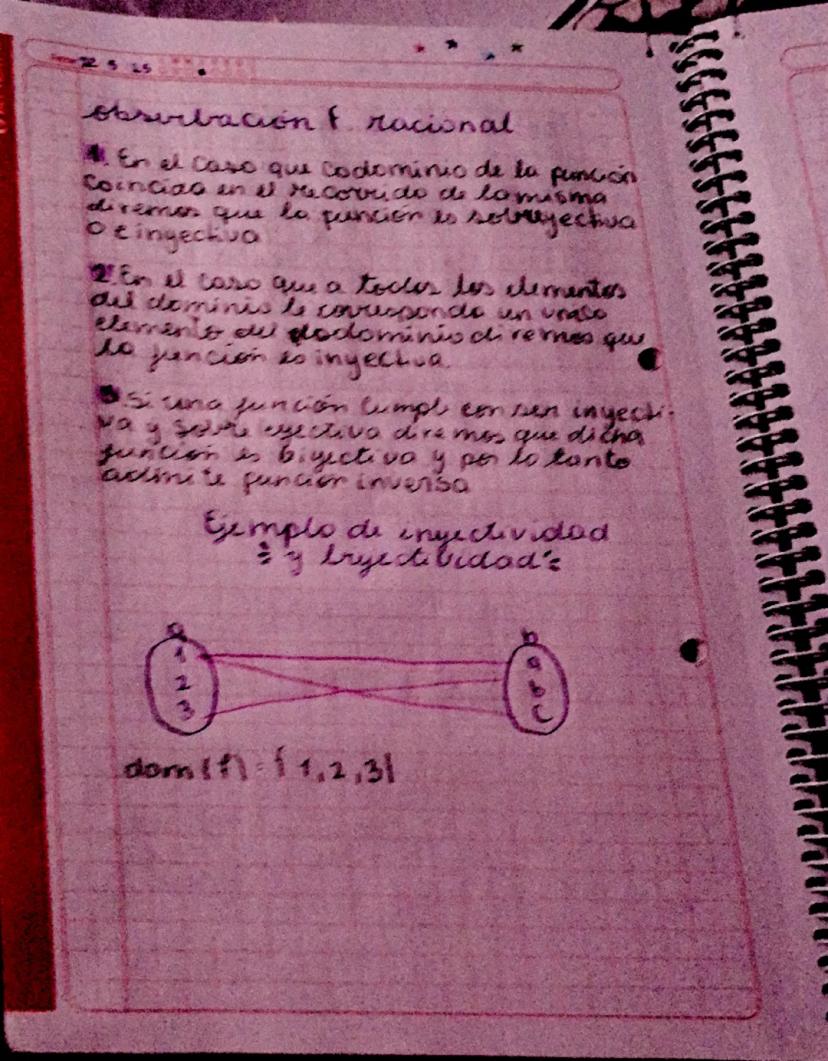 22 5 25
observación f. racional
1. En el caso que codominio de la función
coincida en el recorrido de la misma
diremos que la función es sobreyectiva
o e inyectiva
2. En el caso que a todos los elementos
del dominio le corresponda un unico
elemento del dodominio diremos que
la función es inyectiva.
3 Si una función cumpl con ser inyecti-
va y sobre eyectiva diremos que dicha
función es biyectiva y por lo tanto
admite función inversa
Ejemplo de inyectividad
y biyectividad
a b
1 a
2 b
3 c
dom(f) = {1, 2, 3}